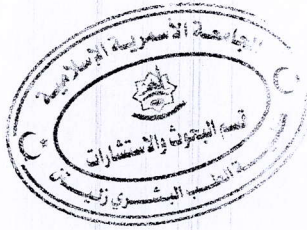 الجامعة الأسمرية الإسلامية
قسم البحوث والاستشارات
الطب البشري زليتن